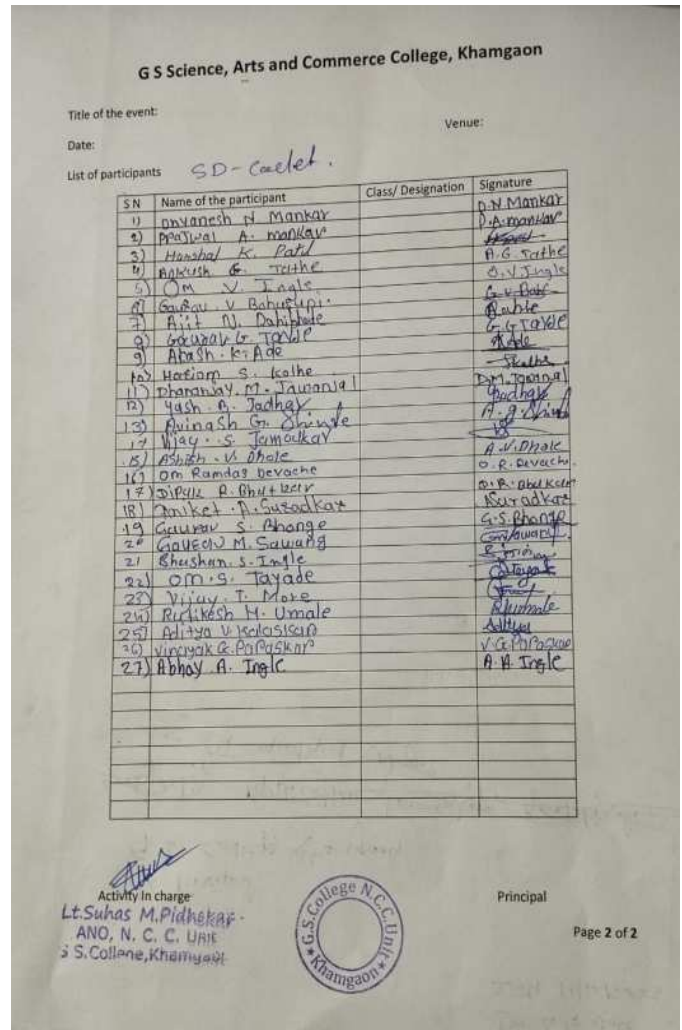 G S Science, Arts and Commerce College, Khamgaon
Title of the event:
Venue:
Date:
List of participants SD-Cadet.
S N Name of the participant Class/ Designation Signature
1) Dnyanesh N Mankar D.N.Mankar
2) Prajwal A. mankar P.A.mankar
3) Harshal K. Patil
4) Ankush G. Tathe A.G.Tathe
5) Om V. Ingle O.V.Ingle
6) Gaurav V Bahurupi.
7) Ajit N. Dahibhate
8) Gaurav G. Tayde G.G Tayde
9) Akash.K.Ade
10) Hariom S. Kolhe
11) Dhananjay.M.Jawanjal
12) Yash.A.Jadhav
13) Avinash G. Shinde
14 Vijay.S.Jamodkar
15) Ashish.V.Dhole A.V.Dhole
16) Om Ramdas Devache O.R.Devache
17) Dipak R. Bhutkar
18) Aniket.A.Suradkar Suradkar
19 Gaurav S. Bhange G.S.Bhange
20 Gaurav M. Sawang
21 Bhushan.S.Ingle
22) Om.S.Tayade
23) Vijay.T.More
24) Rushikesh M.Umale
25) Aditya V.Kalaskar Aditya
26) Vinayak G.Papaskar V.G.Papaskar
27) Abhay A. Ingle A.A.Ingle
Activity In charge Principal
Lt.Suhas M.Pidhekar
ANO, N. C. C. Unit
S.College,Khamgaon
G.S.College N.C.C.Unit
Khamgaon
Page 2 of 2